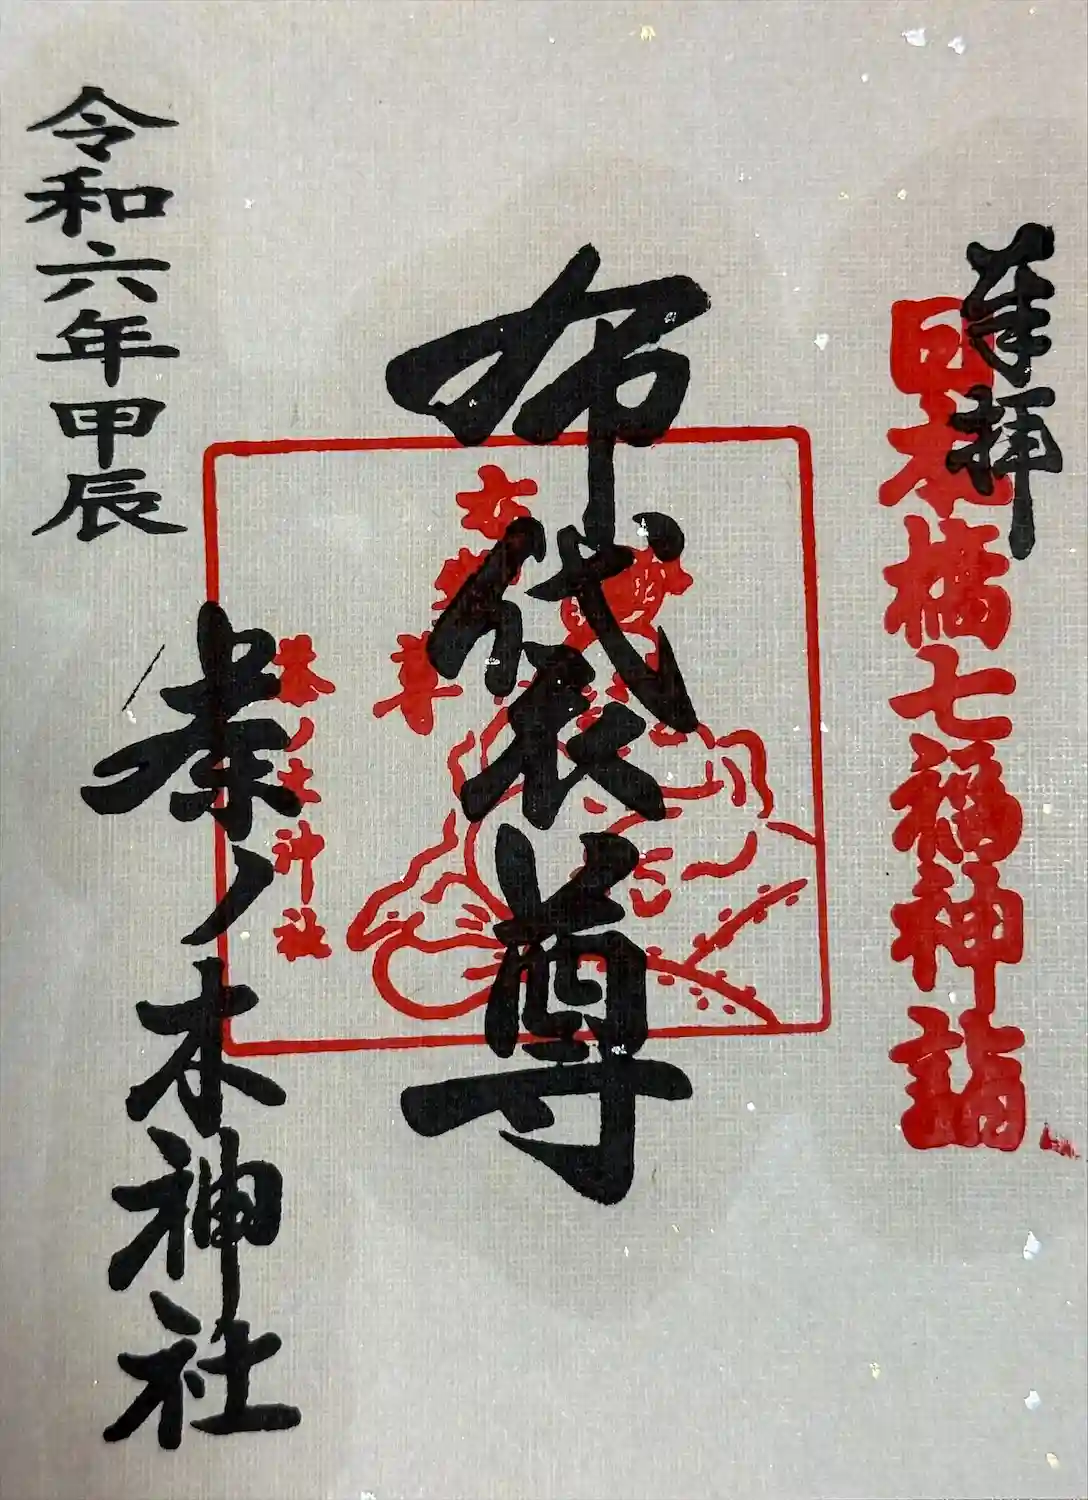 奉拝
日本橋七福神詣
布袋尊
布袋尊
茶ノ木神社
茶ノ木神社
令和六年甲辰